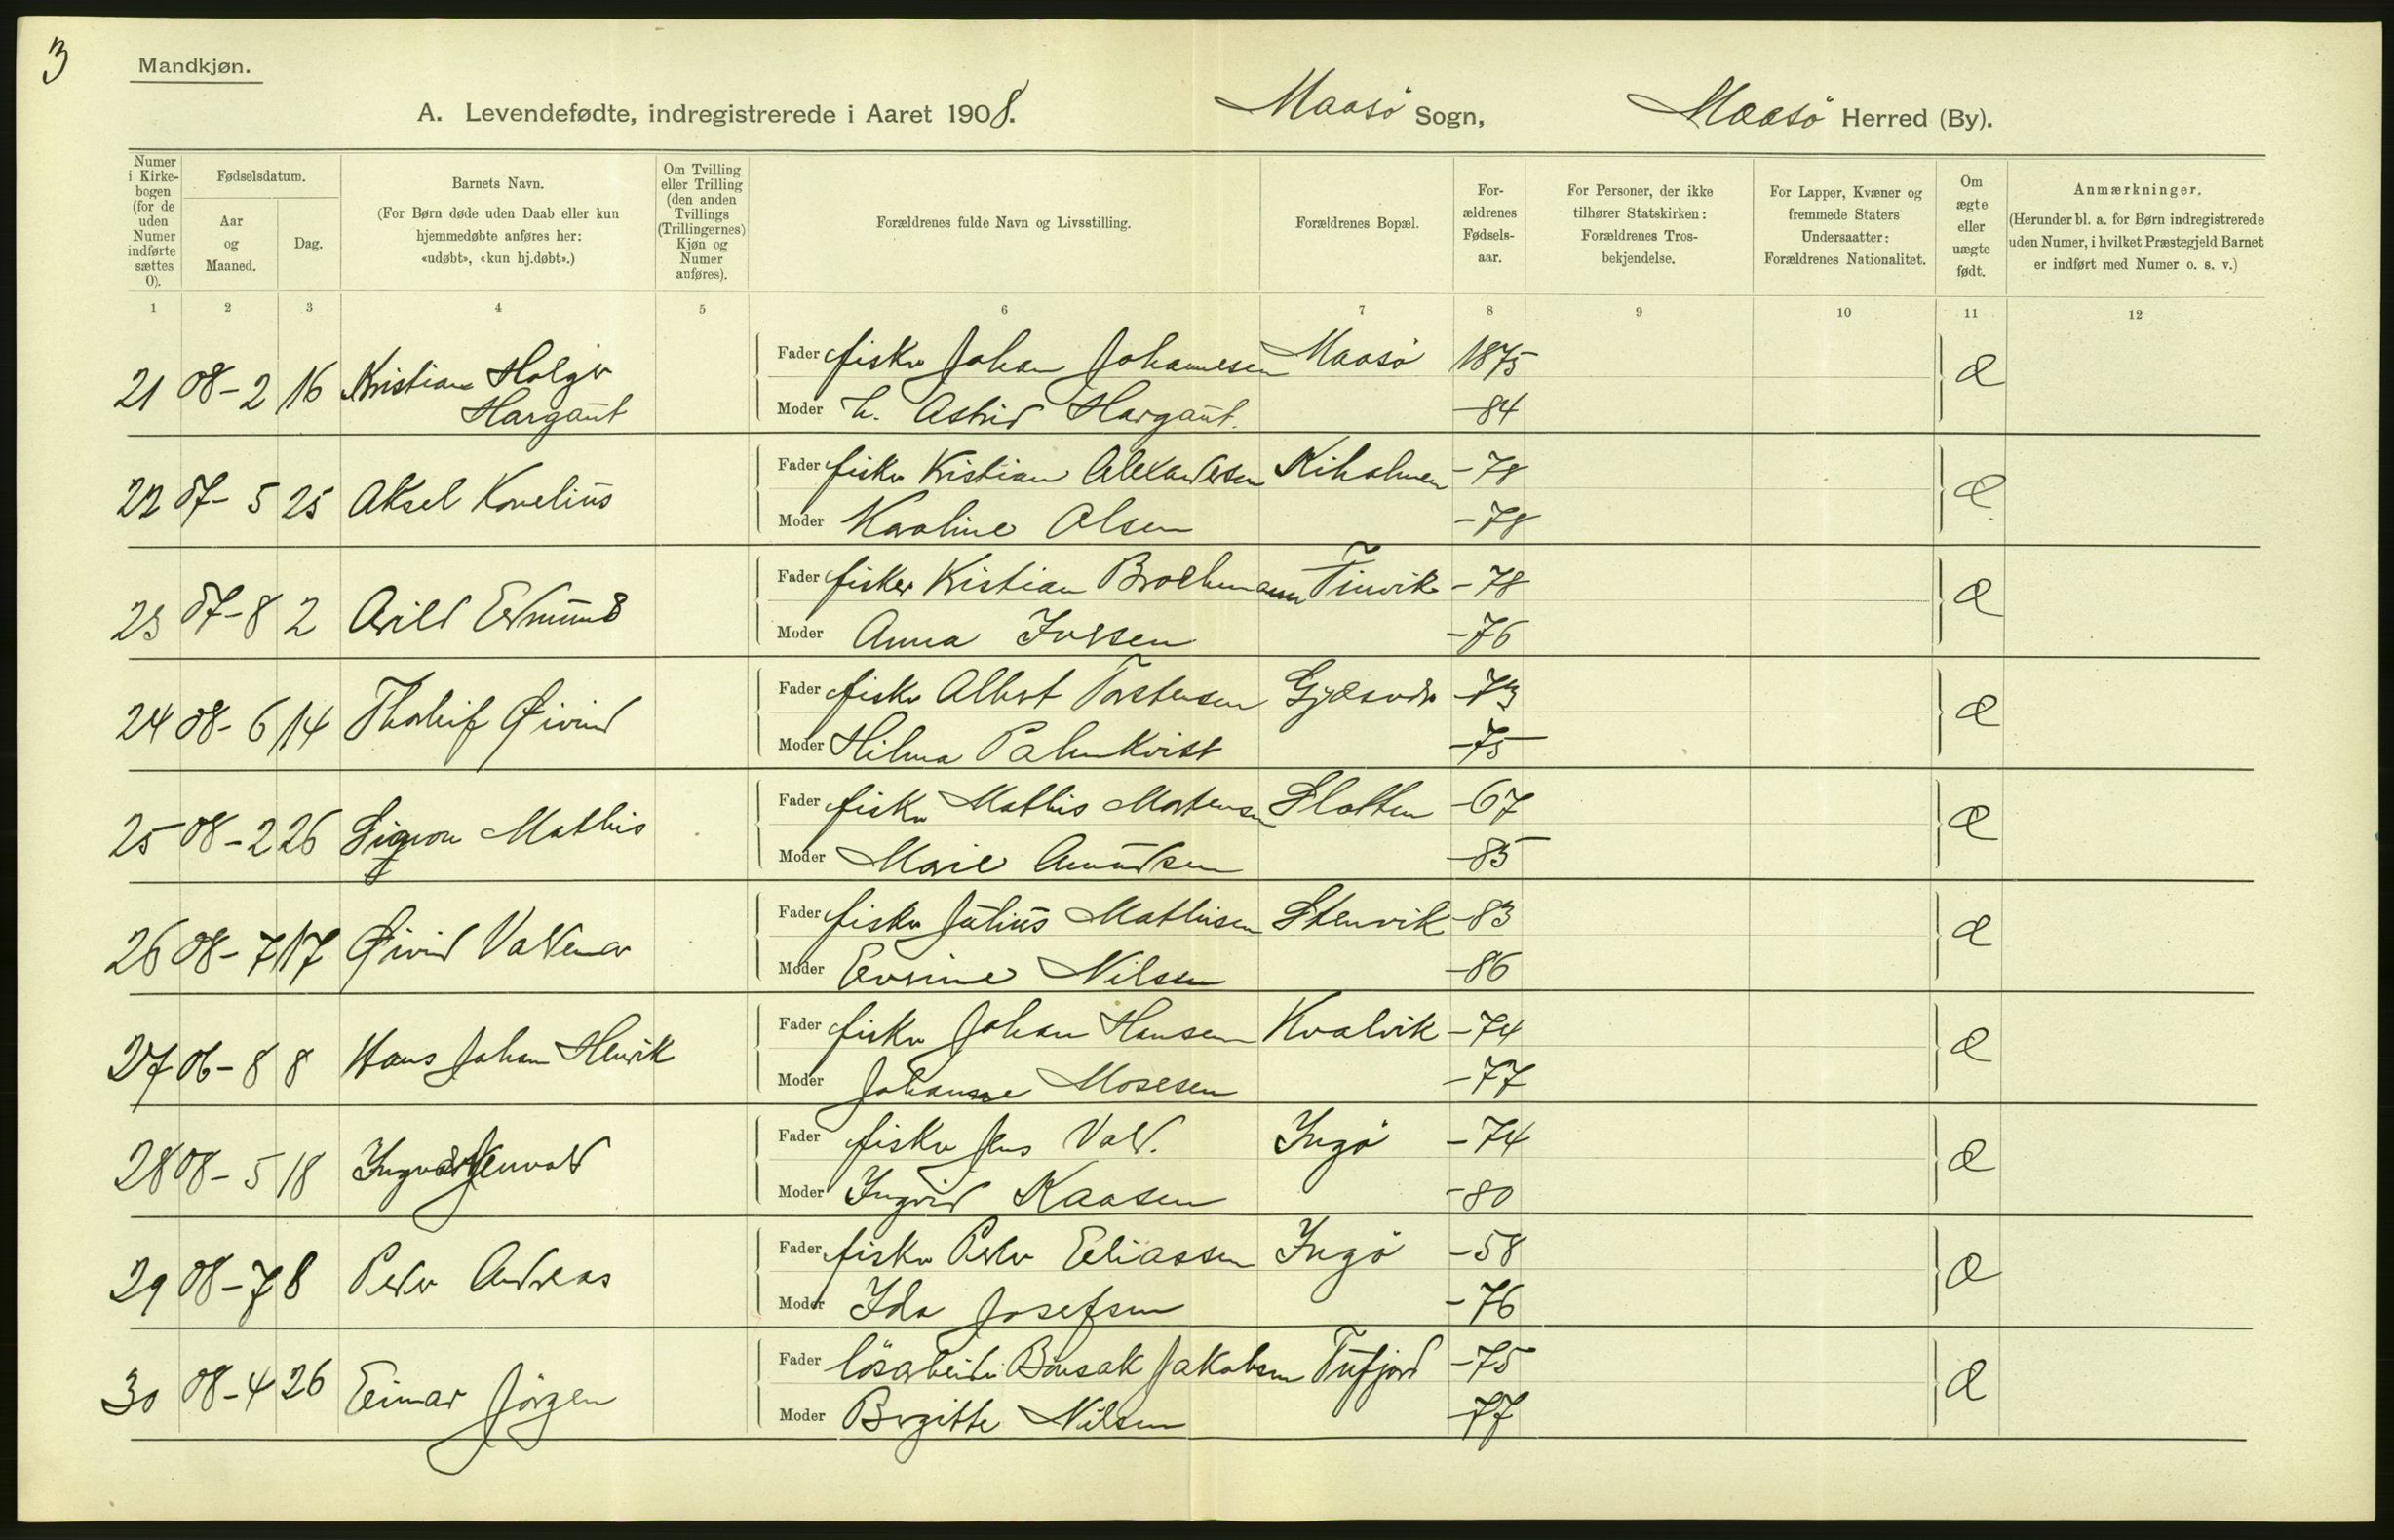 3
Mandkjøn.
A. Levendefødte, indregistrerede i Aaret 1908. Maasö Sogn, Maasö Herred (By).
Numer i Kirkebogen (for de uden Numer indførte sættes 0).
Fødselsdatum.
Aar og Maaned.
Dag.
Barnets Navn.
(For Børn døde uden Daab eller kun hjemmedøbte anføres her: «udøbt», «kun hj.døbt».)
Om Tvilling eller Trilling (den anden Tvillings (Trillingernes) Kjøn og Numer anføres).
Forældrenes fulde Navn og Livsstilling.
Forældrenes Bopæl.
For-ældrenes Fødsels-aar.
For Personer, der ikke tilhører Statskirken: Forældrenes Tros-bekjendelse.
For Lapper, Kvæner og fremmede Staters Undersaatter: Forældrenes Nationalitet.
Om ægte eller uægte født.
Anmærkninger.
(Herunder bl. a. for Børn indregistrerede uden Numer, i hvilket Præstegjeld Barnet er indført med Numer o. s. v.)
1 2 3 4 5 6 7 8 9 10 11 12
21 08-2 16 Kristian Holger Hargaut Fader fisker Johan Johannesen Maasö 1875 Æ
Moder h. Astrid Hargaut. -84
22 07-5 25 Aksel Kornelius Fader fisker Kristian Alexandersen Kiholmen -78 Æ
Moder Karoline Olsen -78
23 07-8 2 Arild Edmund Fader fisker Kristian Brochmann Tinvik -78 Æ
Moder Anna Iversen -76
24 08-6 14 Thorleif Øivind Fader fisker Albert Torstensen -73 Æ
Moder Hilma Palmkvist -75
25 08-2 26 Mathis Fader fisker Mathis Mortensen Slotten -67 Æ
Moder Marie Amundsen -85
26 08-7 17 Øivind Valdemar Fader fisker Julius Mathisen Stenvik -83 Æ
Moder Evrine Nilsen -86
27 06-8 8 Hans Johan Henrik Fader fisker Johan Hansen Kvalvik -74 Æ
Moder Johanne Mosesen -77
28 08-5 18 Ingvald Jenvald Fader fisker Jens Vald. Ingö -74 Æ
Moder Ingrid Kaasen -80
29 08-7 8 Peder Andreas Fader fisker Peder Eliassen Ingö -58 Æ
Moder Ida Josefsen -76
30 08-4 26 Einar Jörgen Fader lösarbeider Jakobsen Tufjord -75 Æ
Moder Birgitte Nilsen -77